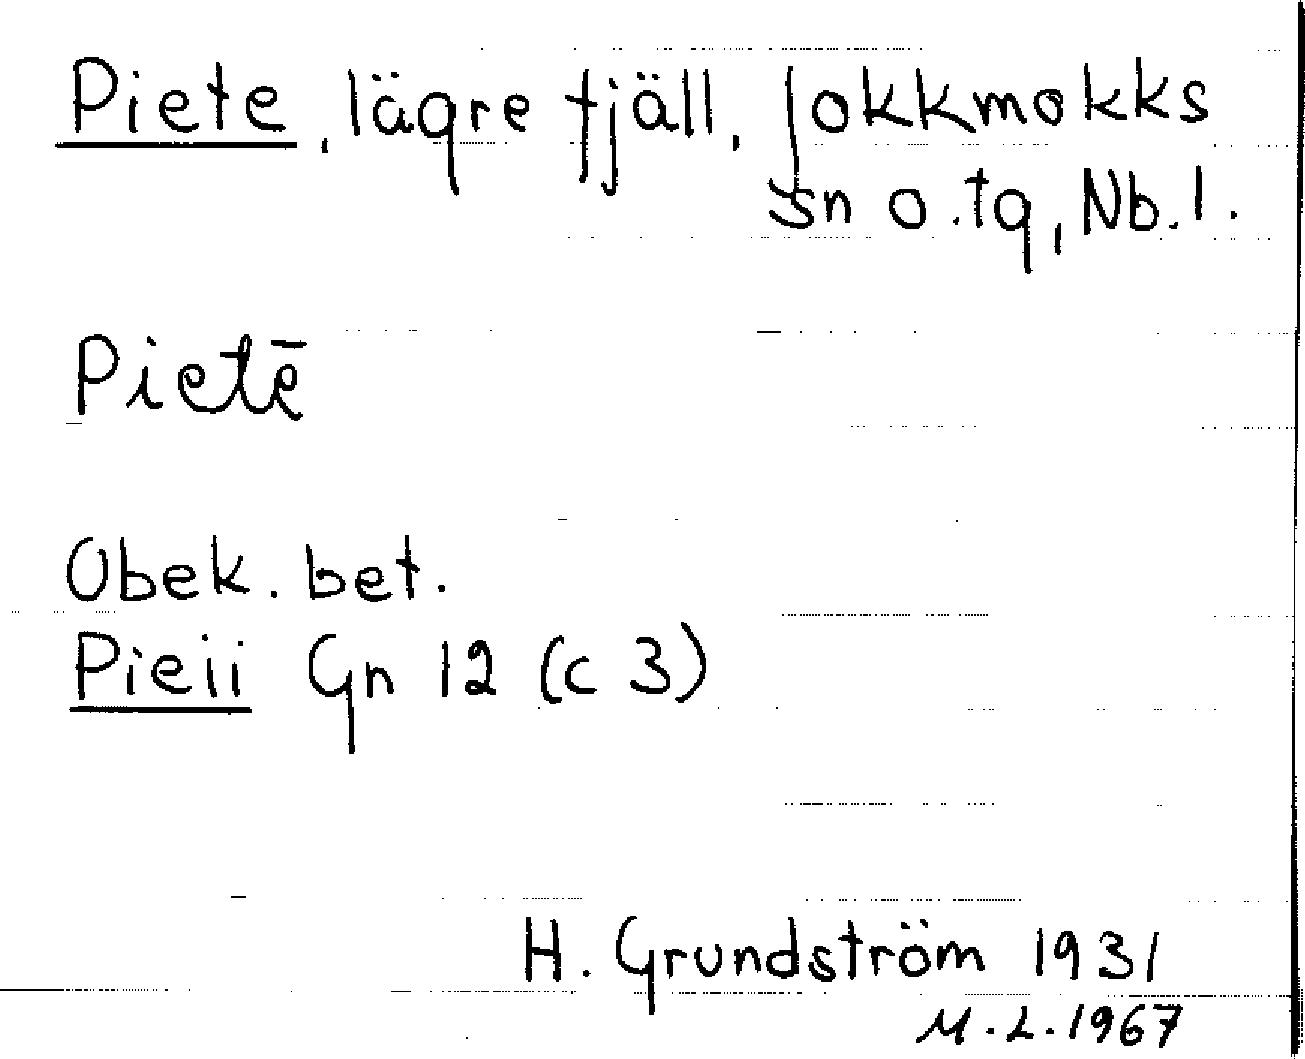 Piete, lägre fjäll, Jokkmokks
sn o. tg, Nb. l.
Pietē
Obek. bet.
Pieii Gn 12 (c 3)
H. Grundström 1931
M.L. 1967